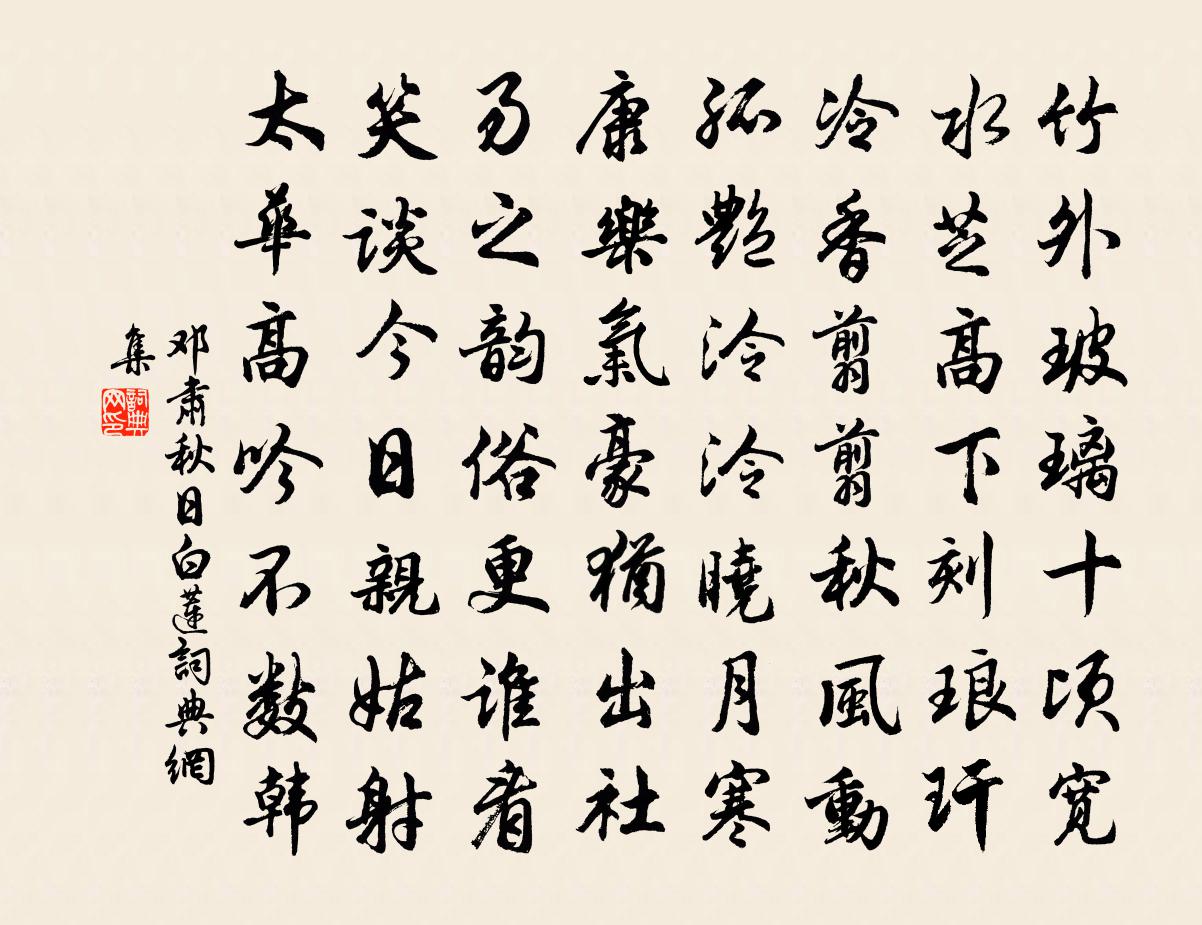 竹外玻璃十顷宽
水芝高下刻琅玕
冷香翦翦秋風動
孤艷泠泠曉月寒
康樂氣豪猶出社
易之韵俗更谁看
笑談今日親姑射
太華高吟不数韩
邓肃秋日白蓮詞典網
集
詞典网印